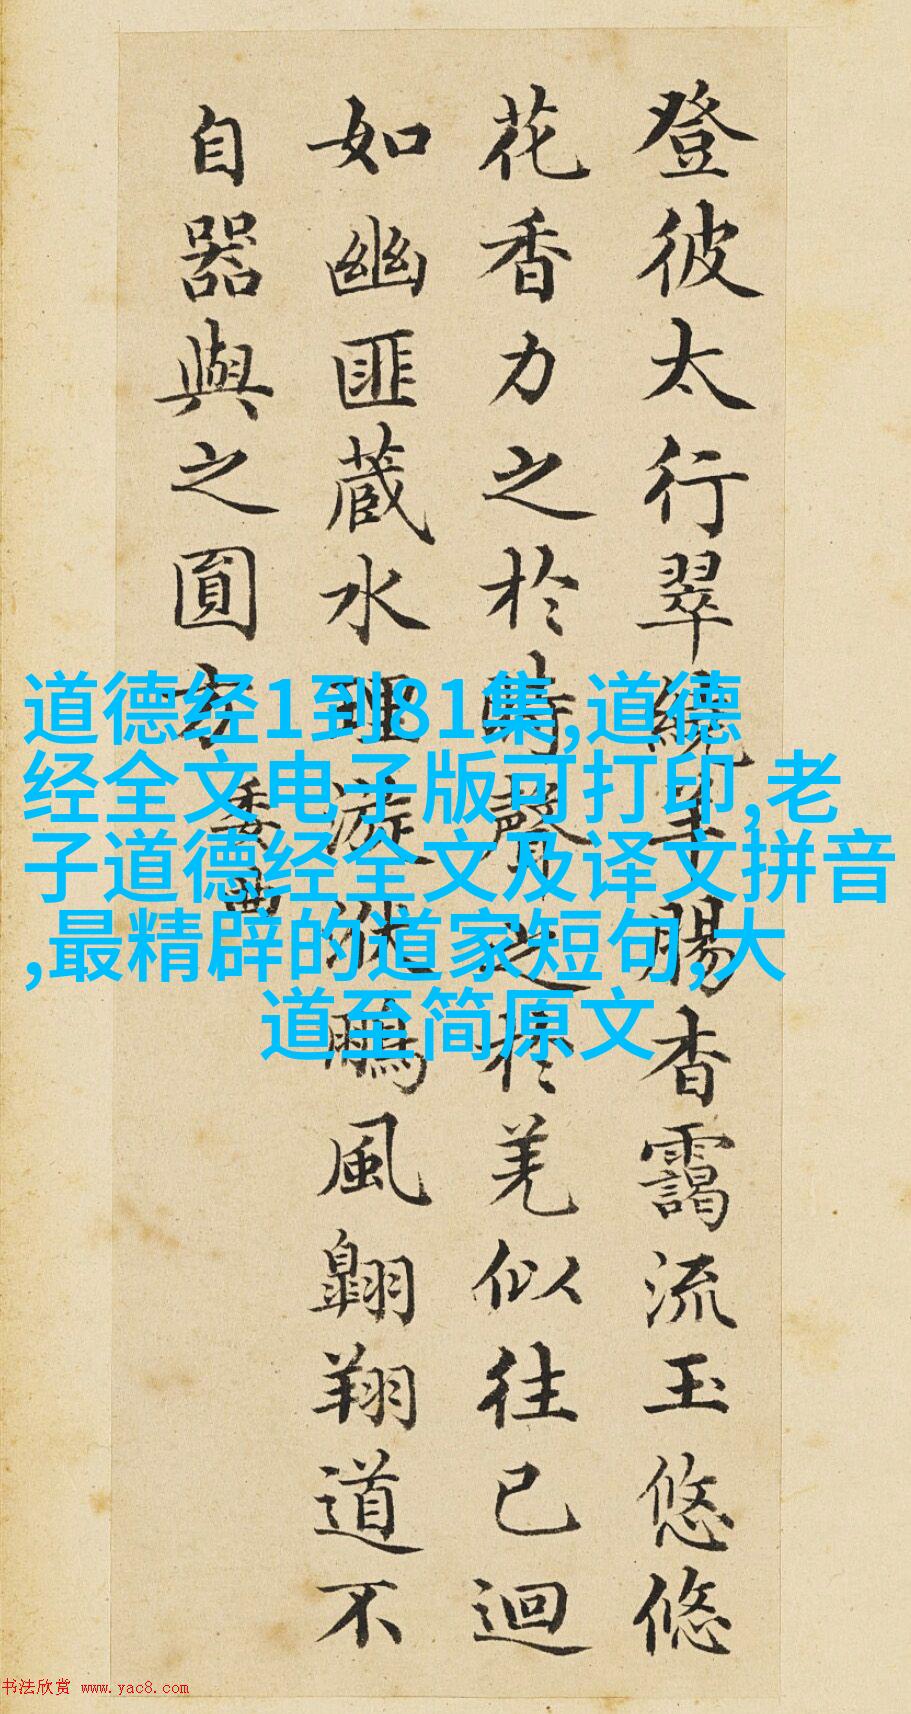 登彼太行翠繞羊腸杳靄流玉悠悠
花香力之於時聲之於羌似往已迴
如幽匪蔵水理漩洑鵬風翶翔道不
自器與之圎方
委曲
道德经1到81集,道德
经全文电子版可打印,老
子道德经全文及译文拼音
,最精辟的道家短句,大
道至简原文
书法欣赏 www.yac8.com